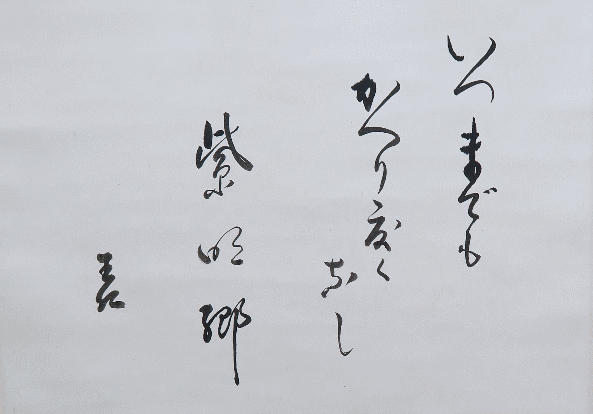 いつまでも
かへり度く
なし
紫明郷